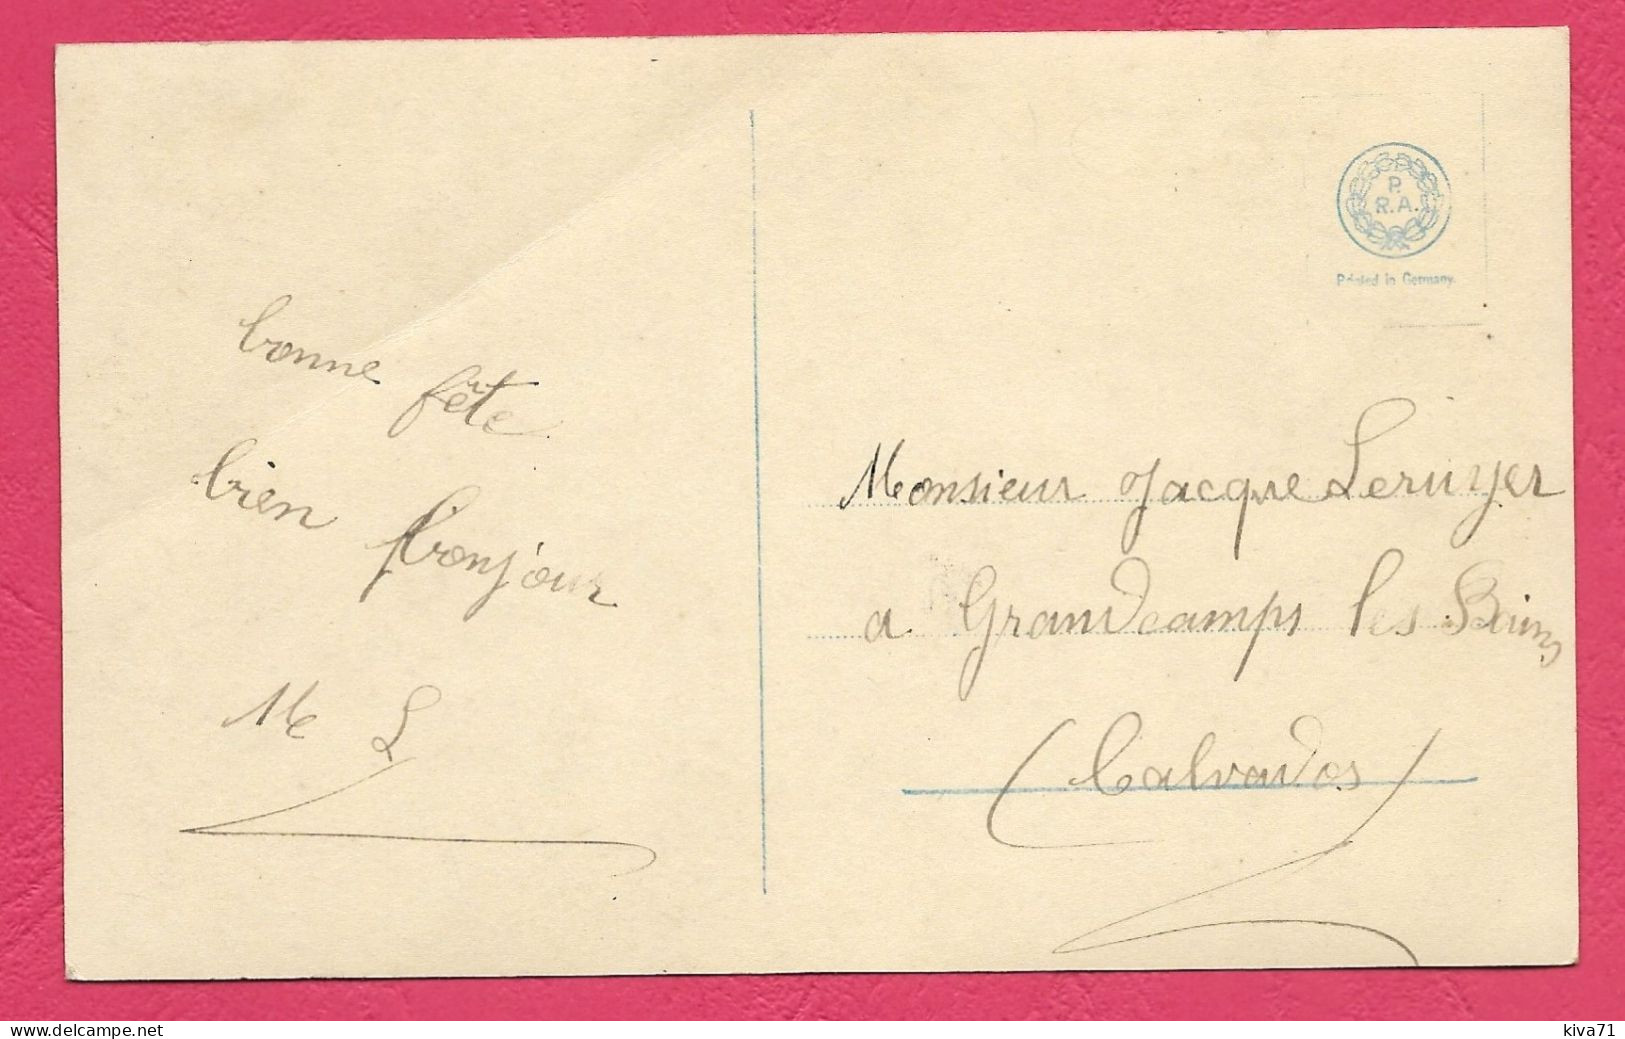 bonne fête
bien bonjour
M L
P.
R.A.
Printed in Germany
Monsieur Jacque Leruyer
a Grandcamps les Bains
(Calvados)
kiva71